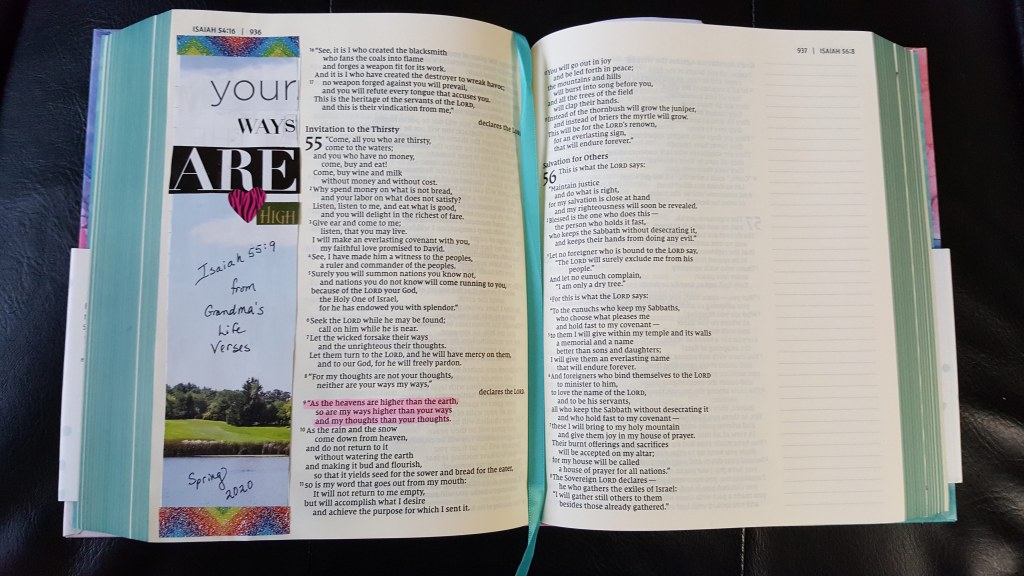 ISAIAH 54:16 | 936
your
WAYS
ARE
HIGH
Isaiah 55:9
from
Grandma's
Life
Verses
Spring
2020
16 "See, it is I who created the blacksmith
who fans the coals into flame
and forges a weapon fit for its work.
And it is I who have created the destroyer to wreak havoc;
17 no weapon forged against you will prevail,
and you will refute every tongue that accuses you.
This is the heritage of the servants of the LORD,
and this is their vindication from me,"
declares the LORD.
Invitation to the Thirsty
55 "Come, all you who are thirsty,
come to the waters;
and you who have no money,
come, buy and eat!
Come, buy wine and milk
without money and without cost.
2 Why spend money on what is not bread,
and your labor on what does not satisfy?
Listen, listen to me, and eat what is good,
and you will delight in the richest of fare.
3 Give ear and come to me;
listen, that you may live.
I will make an everlasting covenant with you,
my faithful love promised to David.
4 See, I have made him a witness to the peoples,
a ruler and commander of the peoples.
5 Surely you will summon nations you know not,
and nations you do not know will come running to you,
because of the LORD your God,
the Holy One of Israel,
for he has endowed you with splendor."
6 Seek the LORD while he may be found;
call on him while he is near.
7 Let the wicked forsake their ways
and the unrighteous their thoughts.
Let them turn to the LORD, and he will have mercy on them,
and to our God, for he will freely pardon.
8 "For my thoughts are not your thoughts,
neither are your ways my ways,"
declares the LORD.
9 "As the heavens are higher than the earth,
so are my ways higher than your ways
and my thoughts than your thoughts.
10 As the rain and the snow
come down from heaven,
and do not return to it
without watering the earth
and making it bud and flourish,
so that it yields seed for the sower and bread for the eater,
11 so is my word that goes out from my mouth:
It will not return to me empty,
but will accomplish what I desire
and achieve the purpose for which I sent it.
937 | ISAIAH 56:8
You will go out in joy
and be led forth in peace;
the mountains and hills
will burst into song before you,
and all the trees of the field
will clap their hands.
Instead of the thornbush will grow the juniper,
and instead of briers the myrtle will grow.
This will be for the LORD's renown,
for an everlasting sign,
that will endure forever."
Salvation for Others
56 This is what the LORD says:
"Maintain justice
and do what is right,
for my salvation is close at hand
and my righteousness will soon be revealed.
2 Blessed is the one who does this—
the person who holds it fast,
who keeps the Sabbath without desecrating it,
and keeps their hands from doing any evil."
3 Let no foreigner who is bound to the LORD say,
"The LORD will surely exclude me from his
people."
And let no eunuch complain,
"I am only a dry tree."
4 For this is what the LORD says:
"To the eunuchs who keep my Sabbaths,
who choose what pleases me
and hold fast to my covenant—
5 to them I will give within my temple and its walls
a memorial and a name
better than sons and daughters;
I will give them an everlasting name
that will endure forever.
6 And foreigners who bind themselves to the LORD
to minister to him,
to love the name of the LORD,
and to be his servants,
all who keep the Sabbath without desecrating it
and who hold fast to my covenant—
7 these I will bring to my holy mountain
and give them joy in my house of prayer.
Their burnt offerings and sacrifices
will be accepted on my altar;
for my house will be called
a house of prayer for all nations."
8 The Sovereign LORD declares—
he who gathers the exiles of Israel:
"I will gather still others to them
besides those already gathered."